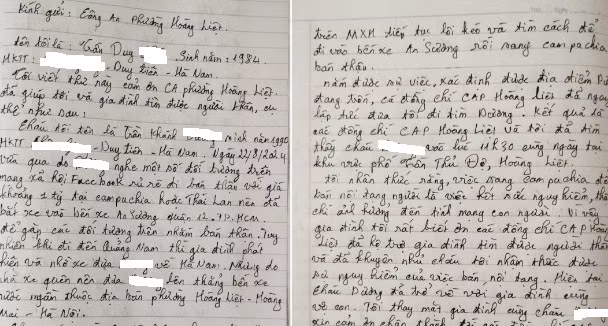 Kính gửi: Công An phường Hoàng Liệt.
tên tôi là: Trần Duy Sinh năm: 1984.
HKTT: - Duy Tiên - Hà Nam.
Tôi viết thư này cảm ơn CA phường Hoàng Liệt
đã giúp tôi và gia đình tìm được người thân, cụ
thể như sau:
Cháu tôi tên là Trần Khánh sinh năm 1990
HKTT - Duy Tiên - Hà Nam. Ngày 22/8/2024
vừa qua do nghe một số đối tượng trên
mạng xã hội Facebook rủ rê đi bán thận với giá
khoảng 1 tỷ tại campuchia hoặc Thái Lan nên đã
bắt xe vào bến xe An Sương quận 12. TP. HCM
để gặp các đối tượng trên nhằm bán thận. Tuy
nhiên khi đi đến Quảng Nam thì gia đình phát
hiện và nhờ xe đưa về Hà Nam. Nhưng do
nhà xe quên nên đưa lên thẳng bến xe
nước ngầm thuộc địa bàn phường Hoàng Liệt - Hoàng
Mai - Hà Nội.
trên MXH tiếp tục lôi kéo và tìm cách để
đi vào bến xe An Sương rồi sang campuchia
bán thận.
nắm được sự việc, xác định được địa điểm
đang trốn, các đồng chí CAP Hoàng Liệt đã ngay
lập tức đưa tôi đi tìm Dương. Kết quả là
các đồng chí CAP Hoàng Liệt và tôi đã tìm
thấy cháu vào lúc 11h30 cùng ngày tại
khu vực phố Trần Thủ Độ, Hoàng Liệt.
tôi nhận thức rằng, việc sang campuchia để
bán nội tạng người là việc hết sức nguy hiểm, thậm
chí ảnh hưởng đến tính mạng con người. Vì vậy
gia đình tôi rất biết ơn các đồng chí CAP Hoàng
Liệt đã hỗ trợ gia đình tìm được người thân
và đã khuyên nhủ cháu tôi nhận thức được
sự nguy hiểm của việc bán nội tạng. Hiện tại
cháu Dương đã trở về với gia đình cùng
vợ con. Tôi thay mặt gia đình cùng cháu
xin cảm ơn chân thành